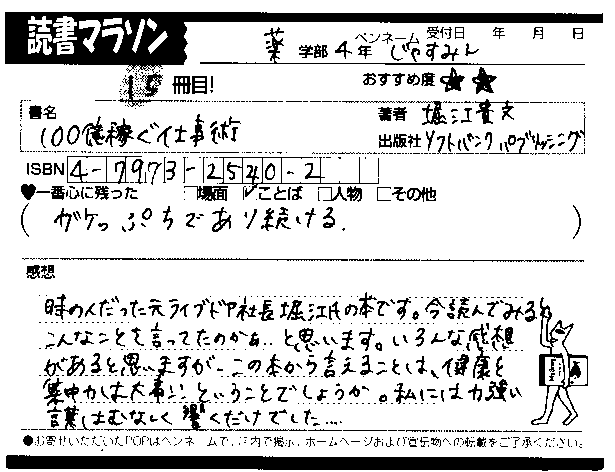 読書マラソン
薬学部4年 ペンネーム じゃすみん 受付日 年 月 日
冊目! おすすめ度 ★ ★
書名 100億稼ぐ仕事術
著者 堀江貴文
出版社 ソフトバンクパブリッシング
ISBN 4-7973-2540-2
♥一番心に残った □場面 ☑ことば □人物 □その他
(ガケっぷちであり続ける。)
感想
時の人だった元ライブドア社長堀江氏の本です。今読んでみると
こんなことを言ってたのかぁ…と思います。いろんな感想
があると思いますが、この本から言えることは、健康と
集中力は大事ということでしょうか。私には力強い
言葉はむなしく響くだけでした…
●お寄せいただいたPOPはペンネームで、店内で掲示、ホームページおよび宣伝物への転載をご了承ください。